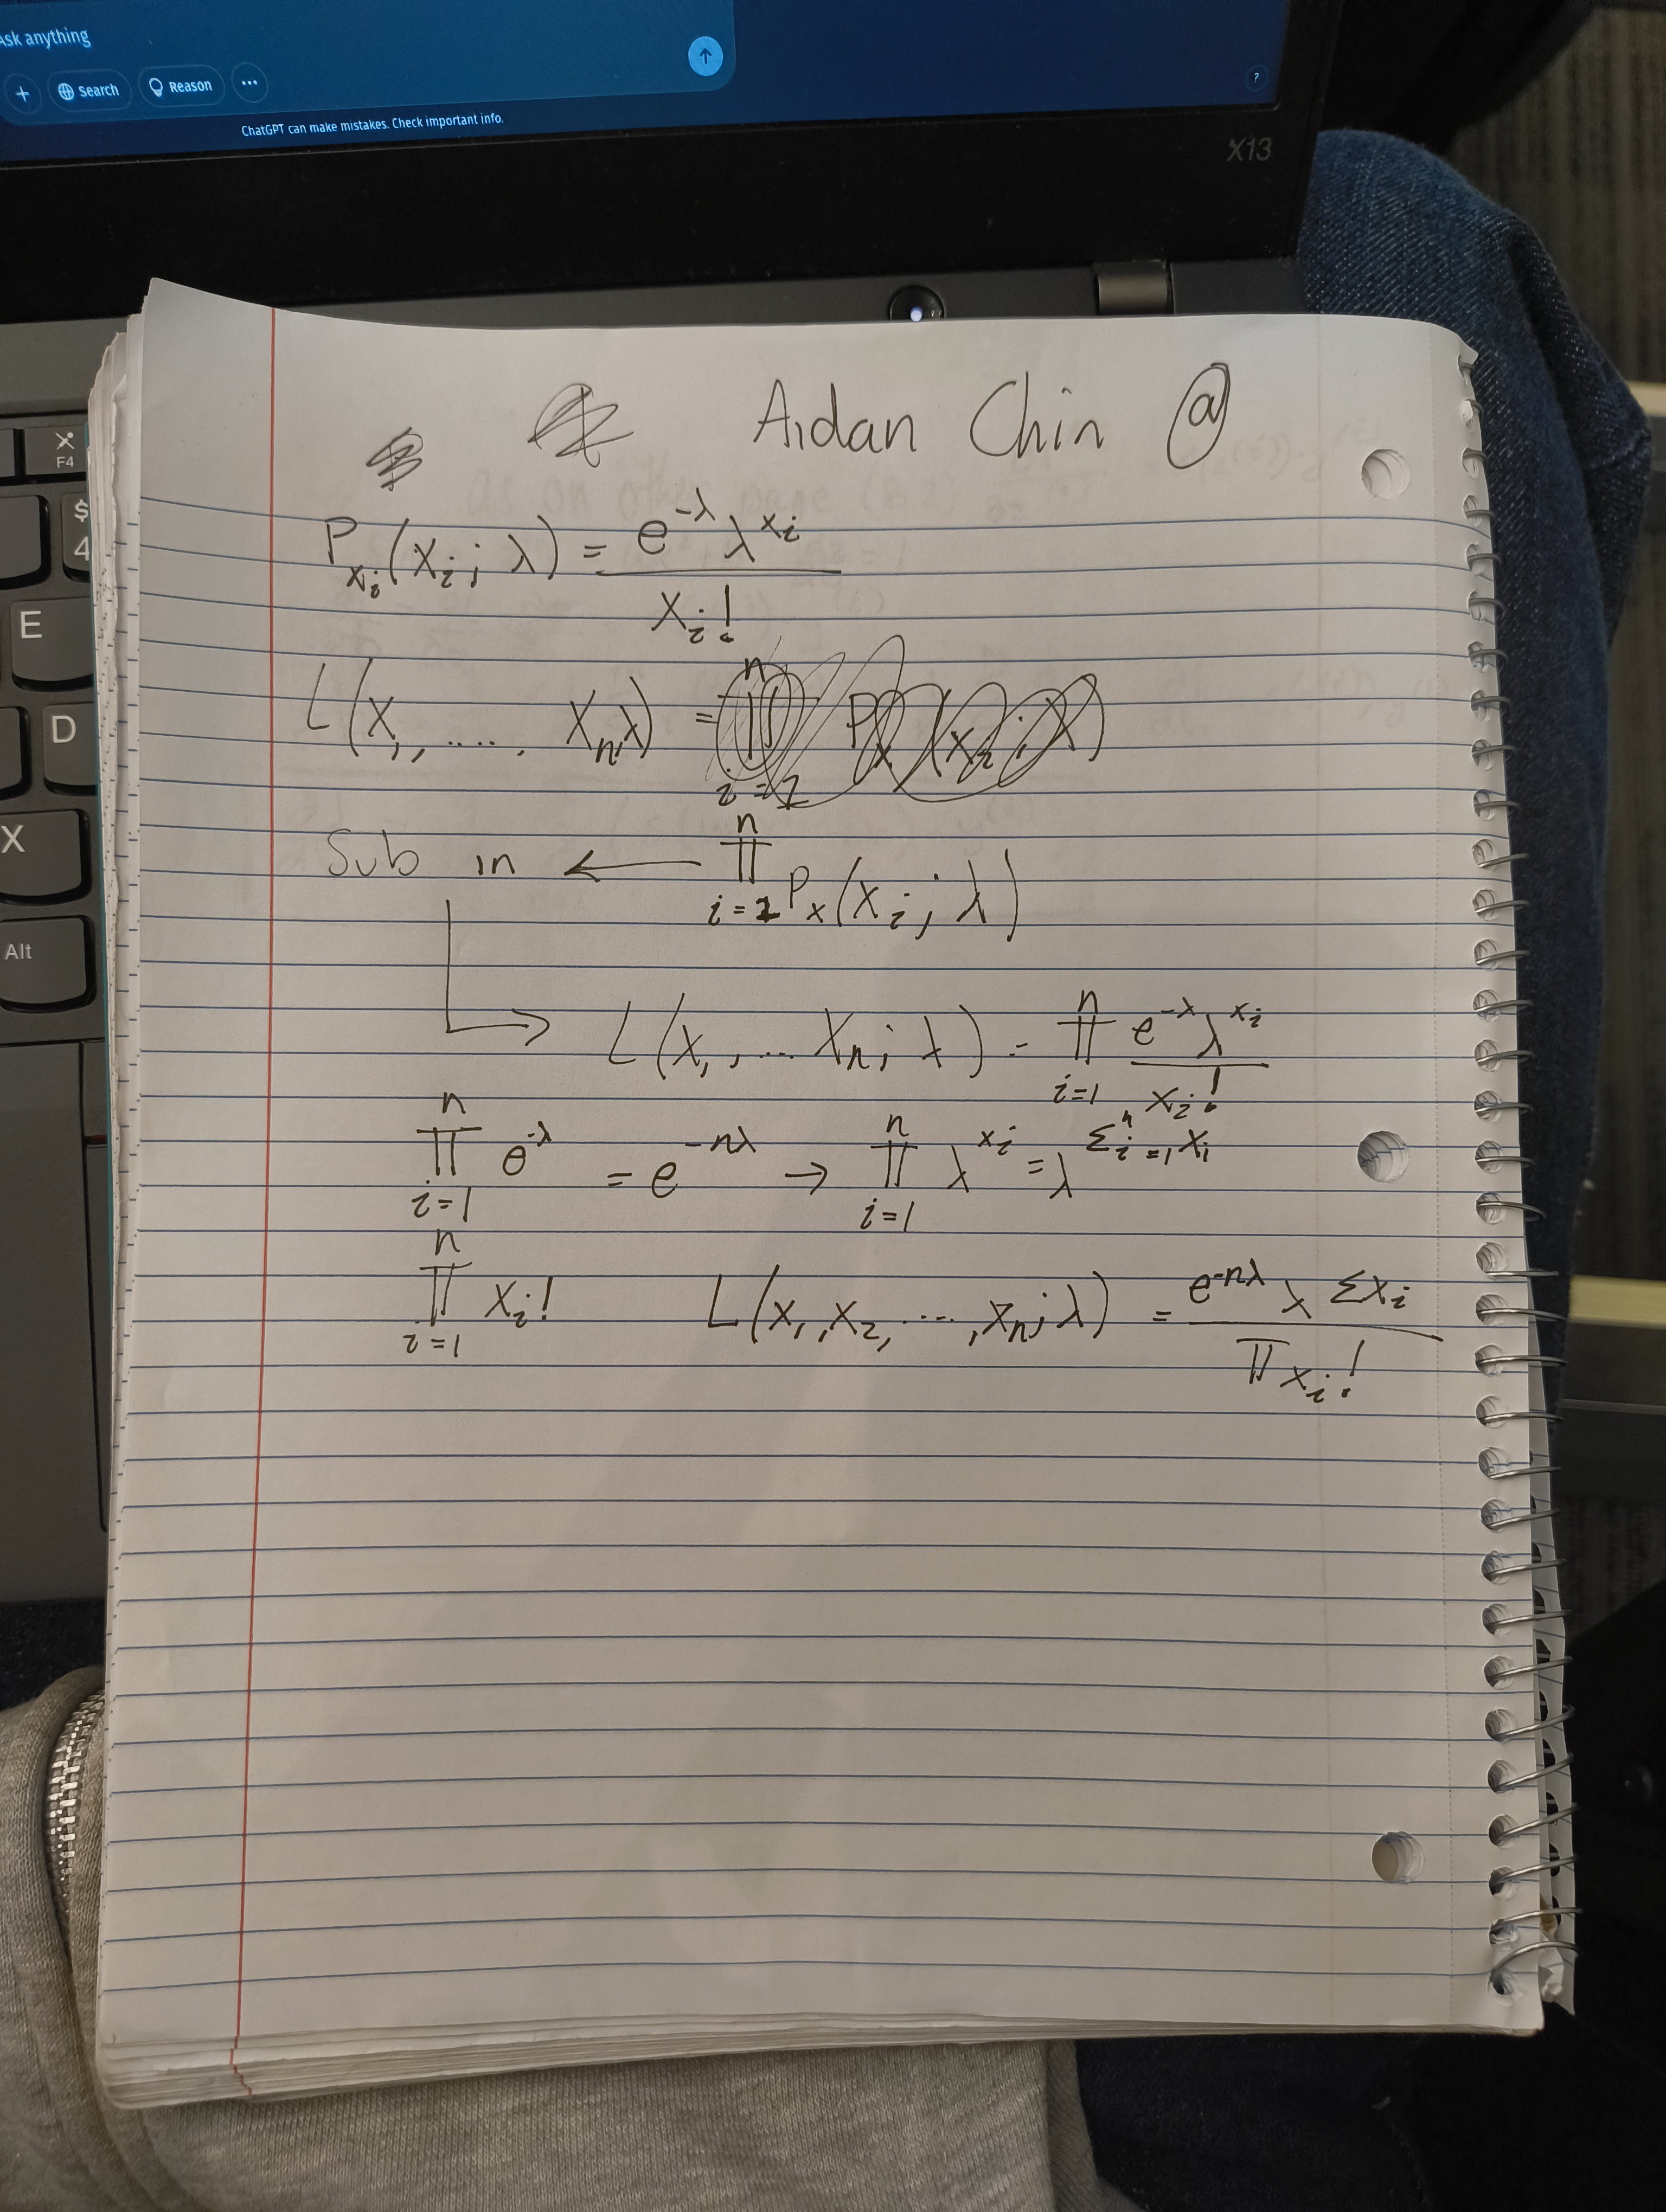 Ask anything
+ Search Reason ...
?
ChatGPT can make mistakes. Check important info.
X13
F4
$
4
E
D
X
Alt
Aidan Chin ⓐ
P_{x_i}(x_i; λ) = e^{-λ} λ^{x_i} / x_i!
L(x_1, ..... , x_n, λ) =
Sub in ← ∏_{i=1}^{n} P_x(x_i; λ)
→ L(x_1, ... x_n; λ) = ∏_{i=1}^{n} e^{-λ} λ^{x_i} / x_i!
∏_{i=1}^{n} e^{-λ} = e^{-nλ} → ∏_{i=1}^{n} λ^{x_i} = λ^{Σ_{i=1}^{n} x_i}
∏_{i=1}^{n} x_i! L(x_1, x_2, ..., x_n; λ) = e^{-nλ} λ^{Σx_i} / ∏x_i!